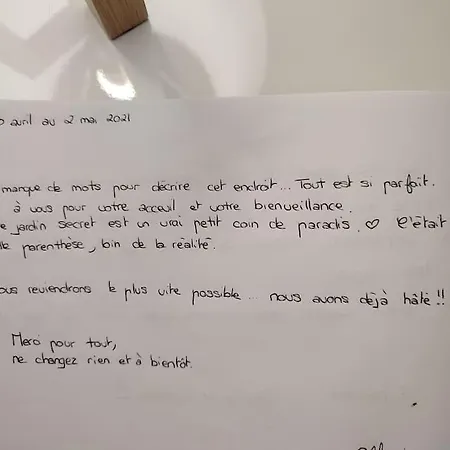 avril au 2 mai 2021
manque de mots pour décrire cet endroit... Tout est si parfait.
à vous pour votre acceuil et votre bienveillance.
jardin secret est un vrai petit coin de paradis. ♡ C'était
parenthèse, loin de la réalité.
reviendrons le plus vite possible... nous avons déjà hâte!!
Merci pour tout,
ne changez rien et à bientôt.